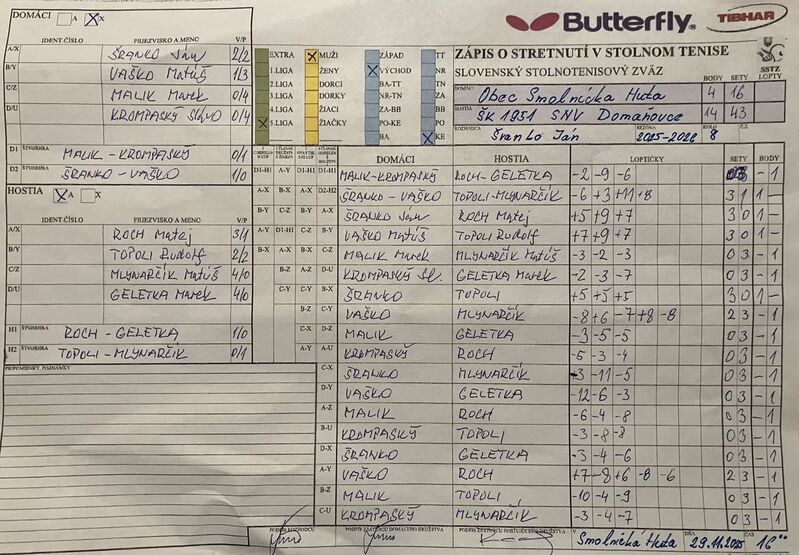 DOMÁCI A X X
Butterfly
TIBHAR
IDENT.ČÍSLO PRIEZVISKO A MENO V/P
A/X ŠRANKO Ján 2/2
B/Y VAŠKO Matúš 1/3
C/Z MALIK Marek 0/4
D/U KROMPASKÝ Slávo 0/4
D1 ŠTVORHRA MALIK - KROMPASKÝ 0/1
D2 ŠTVORHRA ŠRANKO - VAŠKO 1/0
HOSTIA X A X
IDENT.ČÍSLO PRIEZVISKO A MENO V/P
A/X ROCH Matej 3/1
B/Y TOPOLI Rudolf 2/2
C/Z MLYNARČÍK Matúš 4/0
D/U GELETKA Marek 4/0
H1 ŠTVORHRA ROCH - GELETKA 1/0
H2 ŠTVORHRA TOPOLI - MLYNARČÍK 0/1
PRIPOMIENKY, POZNÁMKY
EXTRA X MUŽI ZÁPAD TT
1.LIGA ŽENY X VÝCHOD NR
2.LIGA DORCI BA-TT TN
3.LIGA DORKY NR-TN ZA
4.LIGA ŽIACI ZA-BB BB
X 5.LIGA ŽIAČKY PO-KE PO
BA X KE
ZÁPIS O STRETNUTÍ V STOLNOM TENISE
SLOVENSKÝ STOLNOTENISOVÝ ZVÄZ
SSTZ
BODY SETY LOPTY
DOMÁCI Obec Smolnícka Huta 4 16
HOSTIA ŠK 1951 SNV Domaňovce 14 43
ROZHODCA Švanko Ján SEZÓNA 2025-2026 KOLO 8 Č.Z.
DOMÁCI HOSTIA LOPTIČKY SETY BODY
D1-H1 A-Y D1-H1 D1-H1 MALIK-KROMPASKÝ ROCH-GELETKA -2 -9 -6 03 -1
A-X B-X X-X D2-H2 ŠRANKO - VAŠKO TOPOLI-MLYNARČÍK -6 +3 +11 +8 31 1-
B-Y C-Z A-X ŠRANKO Ján ROCH Matej +5 +9 +7 30 1-
A-Y D1-H1 C-Z B-Y VAŠKO Matúš TOPOLI Rudolf +7 +9 +7 30 1-
B-X A-X B-X C-Z MALIK Marek MLYNARČÍK Matúš -3 -2 -3 03 -1
B-Z A-Z D-U KROMPASKÝ Sl. GELETKA Marek -2 -3 -7 03 -1
C-Y C-Y B-X ŠRANKO TOPOLI +5 +5 +5 30 1-
B-Z C-Y VAŠKO MLYNARČÍK -8 +6 -7 +8 -8 23 -1
C-X D-Z MALIK GELETKA -3 -5 -5 03 -1
A-Y A-U KROMPASKÝ ROCH -5 -3 -4 03 -1
C-X ŠRANKO MLYNARČÍK -3 -11 -5 03 -1
D-Y VAŠKO GELETKA -12 -6 -3 03 -1
A-Z MALIK ROCH -6 -4 -8 03 -1
B-U KROMPASKÝ TOPOLI -3 -8 -8 03 -1
D-X ŠRANKO GELETKA -3 -4 -6 03 -1
A-Y VAŠKO ROCH +7 -8 +6 -8 -6 23 -1
B-Z MALIK TOPOLI -10 -4 -9 03 -1
C-U KROMPASKÝ MLYNARČÍK -3 -4 -7 03 -1
PODPIS ROZHODCU PODPIS ZÁSTUPCU DOMÁCEHO DRUŽSTVA PODPIS ZÁSTUPCU HOSŤUJÚCEHO DRUŽSTVA V Smolnícka Huta DŇA 29.11.2025 ČAS